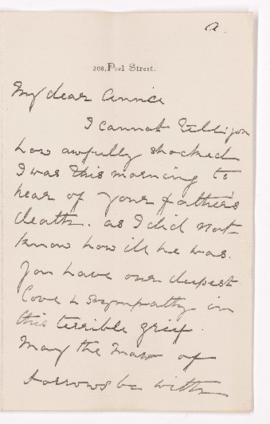 208, Peel Street.
My dear Annie
I cannot tell you
how awfully shocked
I was this morning to
hear of your father's
death. as I did not
know how ill he was.
You have our deepest
Love & sympathy in
this terrible grief.
May the man of
sorrows be with